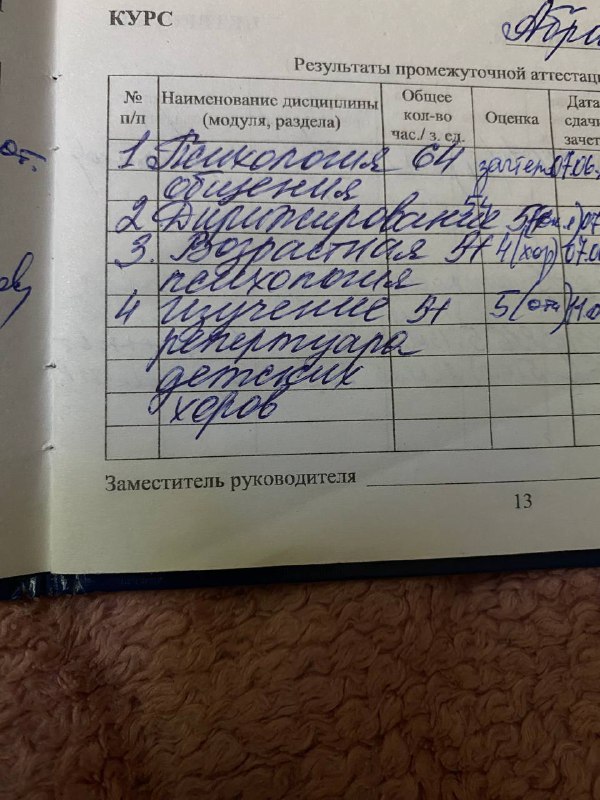 КУРС
Результаты промежуточной аттестац
№ п/п Наименование дисциплины (модуля, раздела) Общее кол-во час./ з. ед. Оценка Дата сдачи зачет
1. Психология 64 зачтено 07.06.
общения
2 Дирижирование 54 5(отл) 07
3. Возрастная 54 4(хор) 07.0
психология
4 изучение 54 5(отл) 11.0
репертуара
детских
хоров
Заместитель руководителя
13